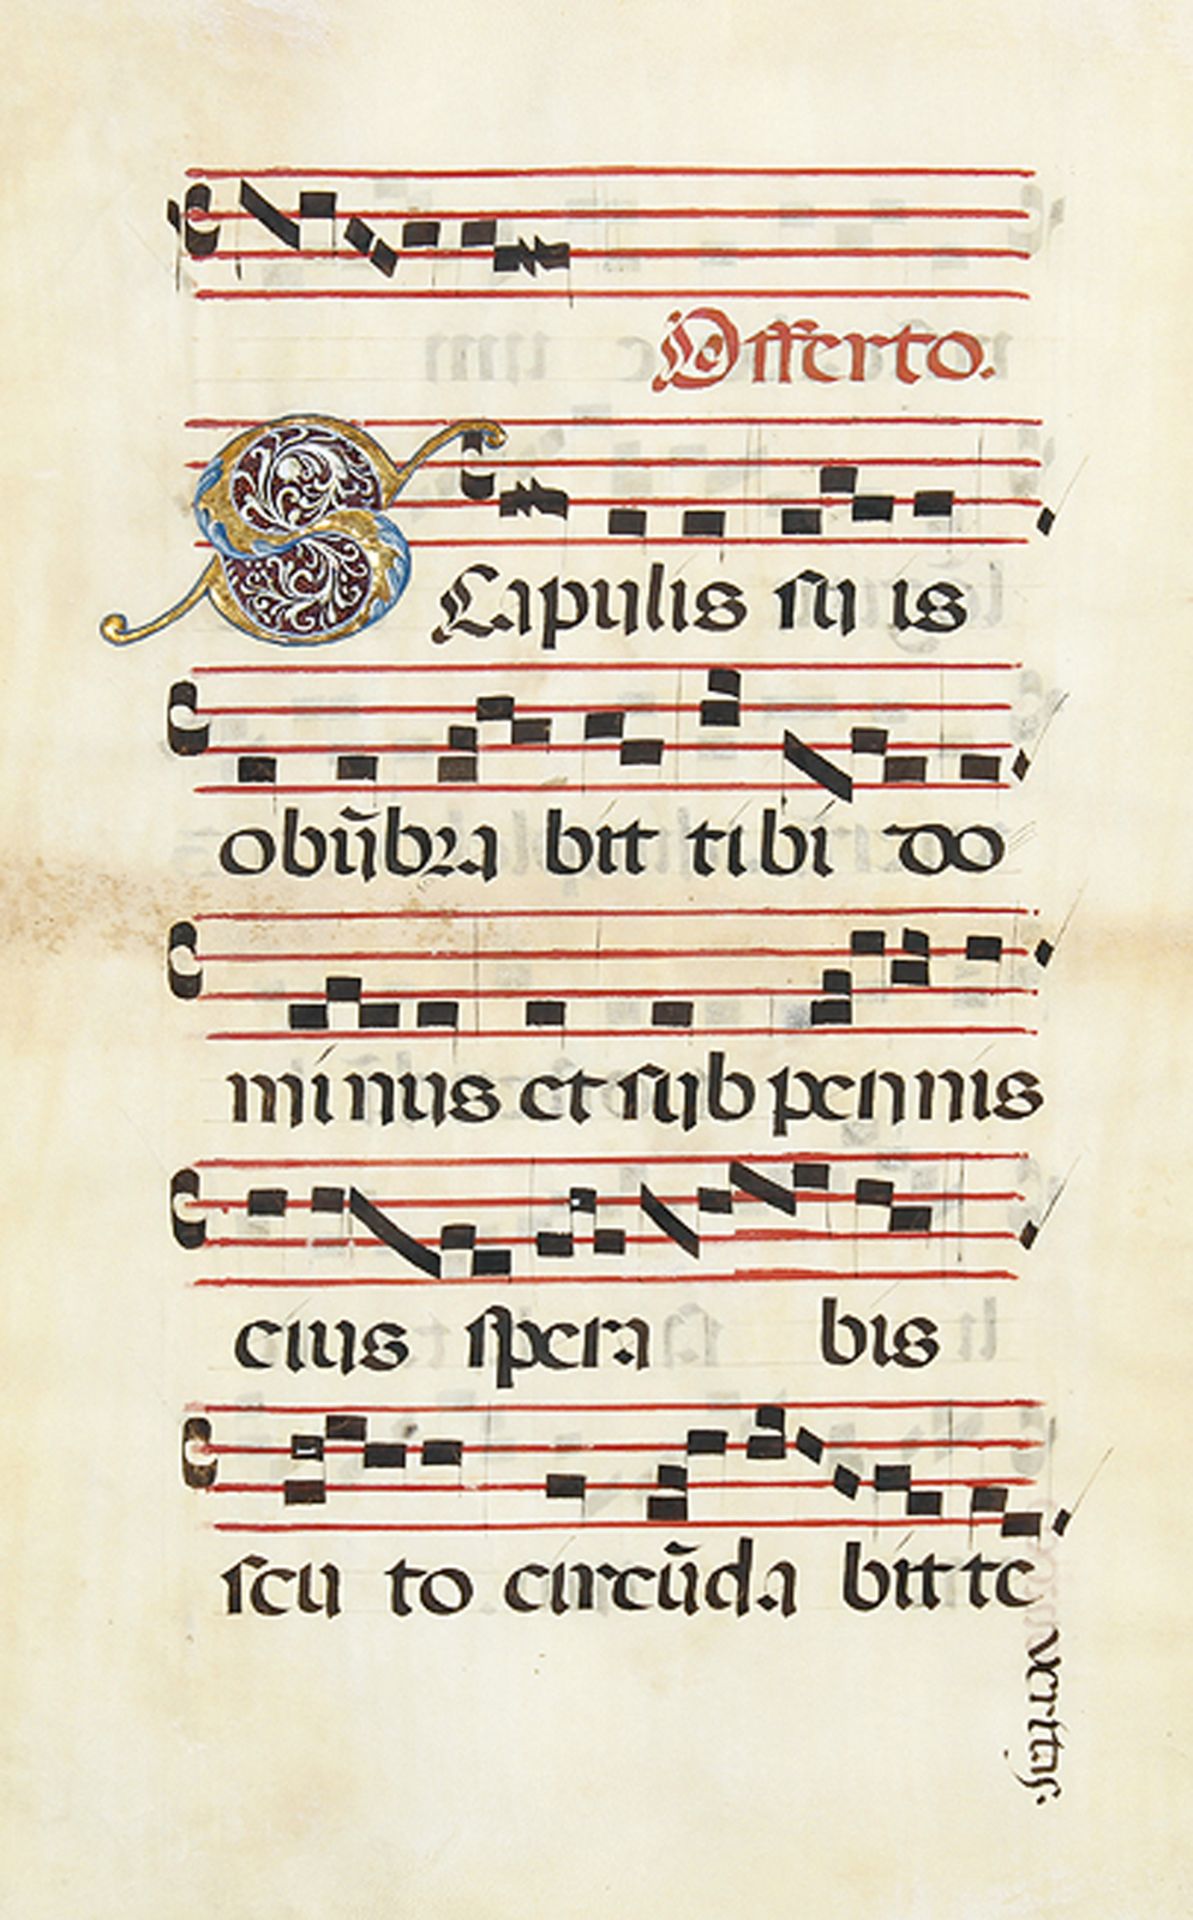 Offerto.
SCapulis su is
obūbra bit tibi do
minus et sub pennis
eius spera bis
scu to circūda bit te
veritas.